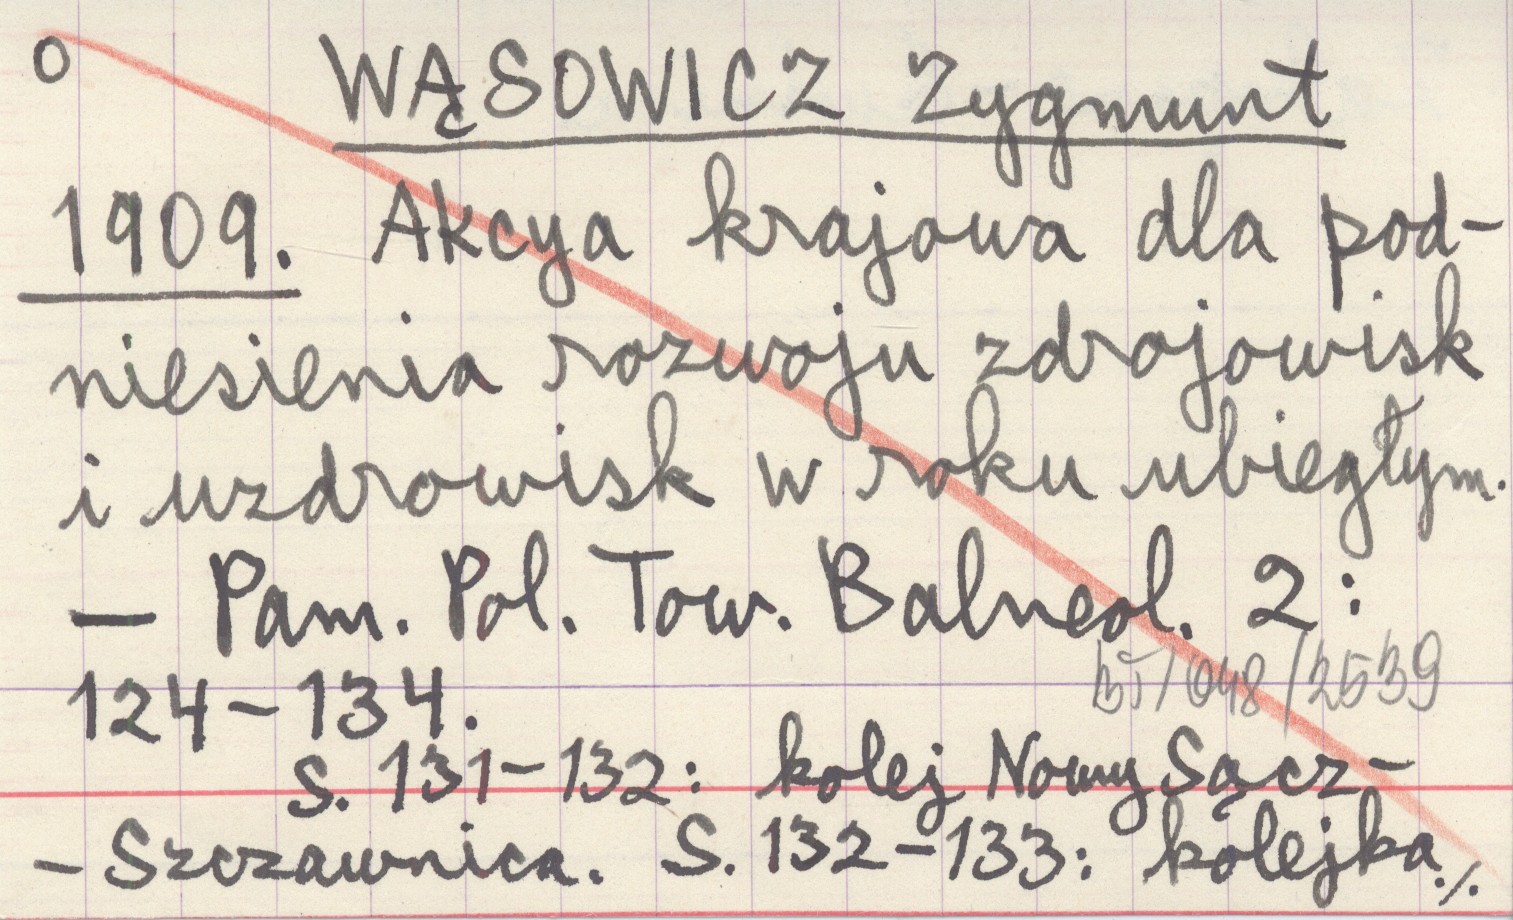 o WĄSOWICZ Zygmunt
1909. Akcya krajowa dla pod-
niesienia rozwoju zdrojowisk
i uzdrowisk w roku ubiegłym.
— Pam. Pol. Tow. Balneol. 2:
124-134.
S. 131-132: kolej Nowy Sącz-
-Szczawnica. S. 132-133: kolejka ./.